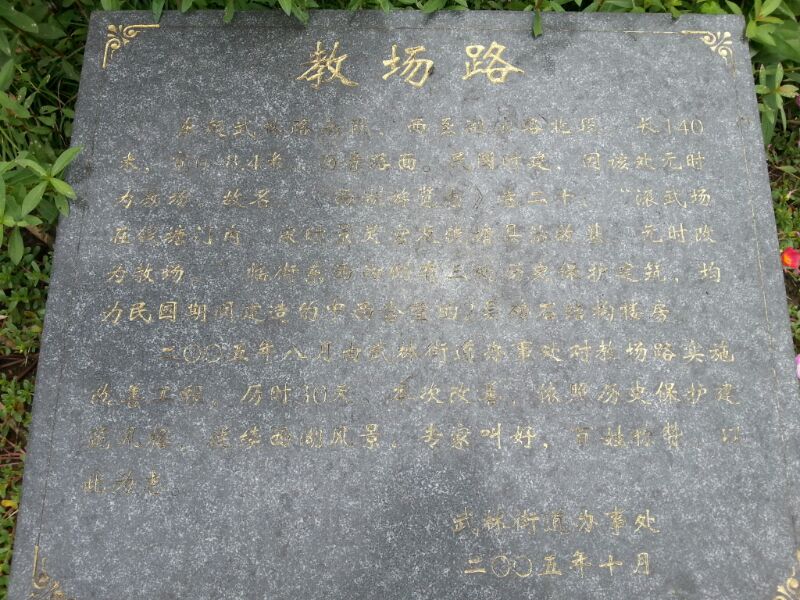 教场路
东起武林路南段,西至湖滨路北段,长140
米,宽 8.4米, 路面。民国时建,因该处元时
为教场,故名。《西湖游览志》卷二十:“演武场
在钱塘门内,宋时 钱塘县治故基,元时改
为教场。” 临街东西 三处历史保护建筑,均
为民国期间建造的中西合璧的 层砖石结构楼房。
二〇〇五年八月由武林街道办事处对教场路实施
改善工程,历时40天。本次改善,依照历史保护建
筑风貌,延续西湖风景,专家叫好,百姓称赞。以
此为志。
武林街道办事处
二〇〇五年十月